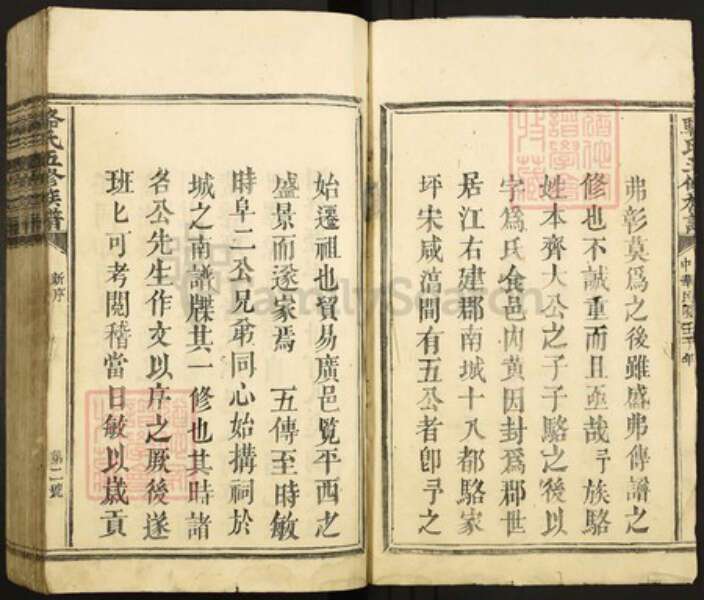 弗彰莫爲之後雖盛弗傳譜之
修也不誠重而且亟哉予族駱
姓本齊大公之子子駱之後以
字爲氏食邑内黄因封爲郡世
居江右建郡南城十八都駱家
坪宋咸湻間有五公者卽予之
始遷祖也貿易廣邑覽平西之
盛景而遂家焉 五傳至時敏
時阜二公兄弟同心始搆祠於
城之南譜牒其一修也其時諸
名公先生作文以序之厥後遂
班匕可考閱稽當日敏以歲貢
駱氏五修族譜
新序
第二號
中華民國
年
FamilySearch